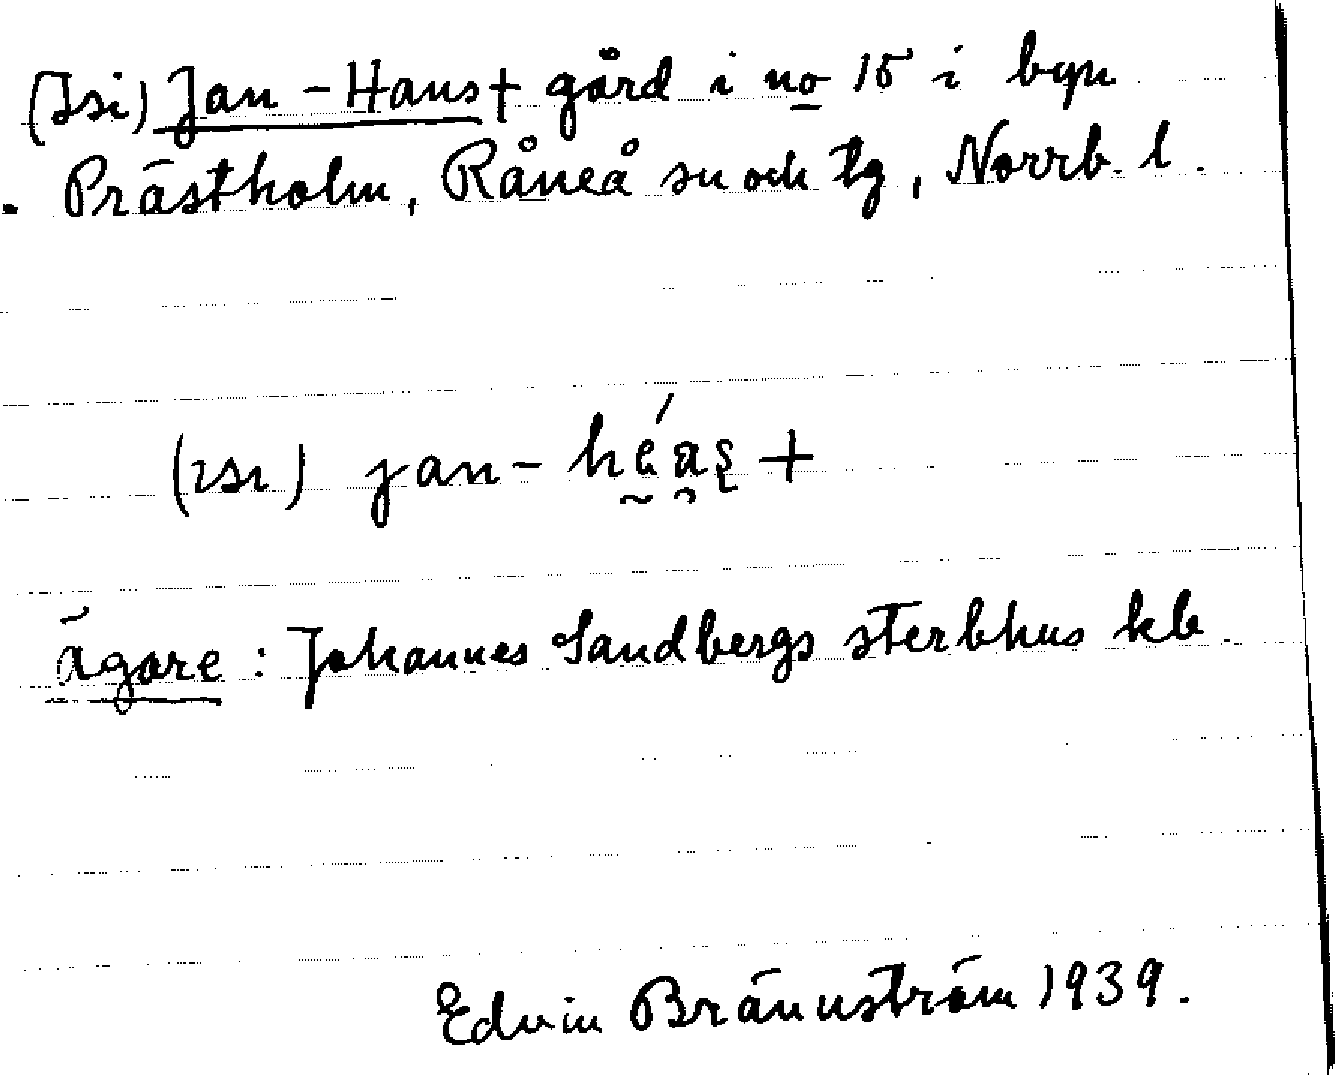 (Isi) Jan-Hans + gård i no 15 i byn
Prästholm, Råneå sn och tg, Norrb. l.
(ɪsɪ) jan-
ägare: Johannes Sandbergs sterbhus kb
Edvin Brännström 1939.